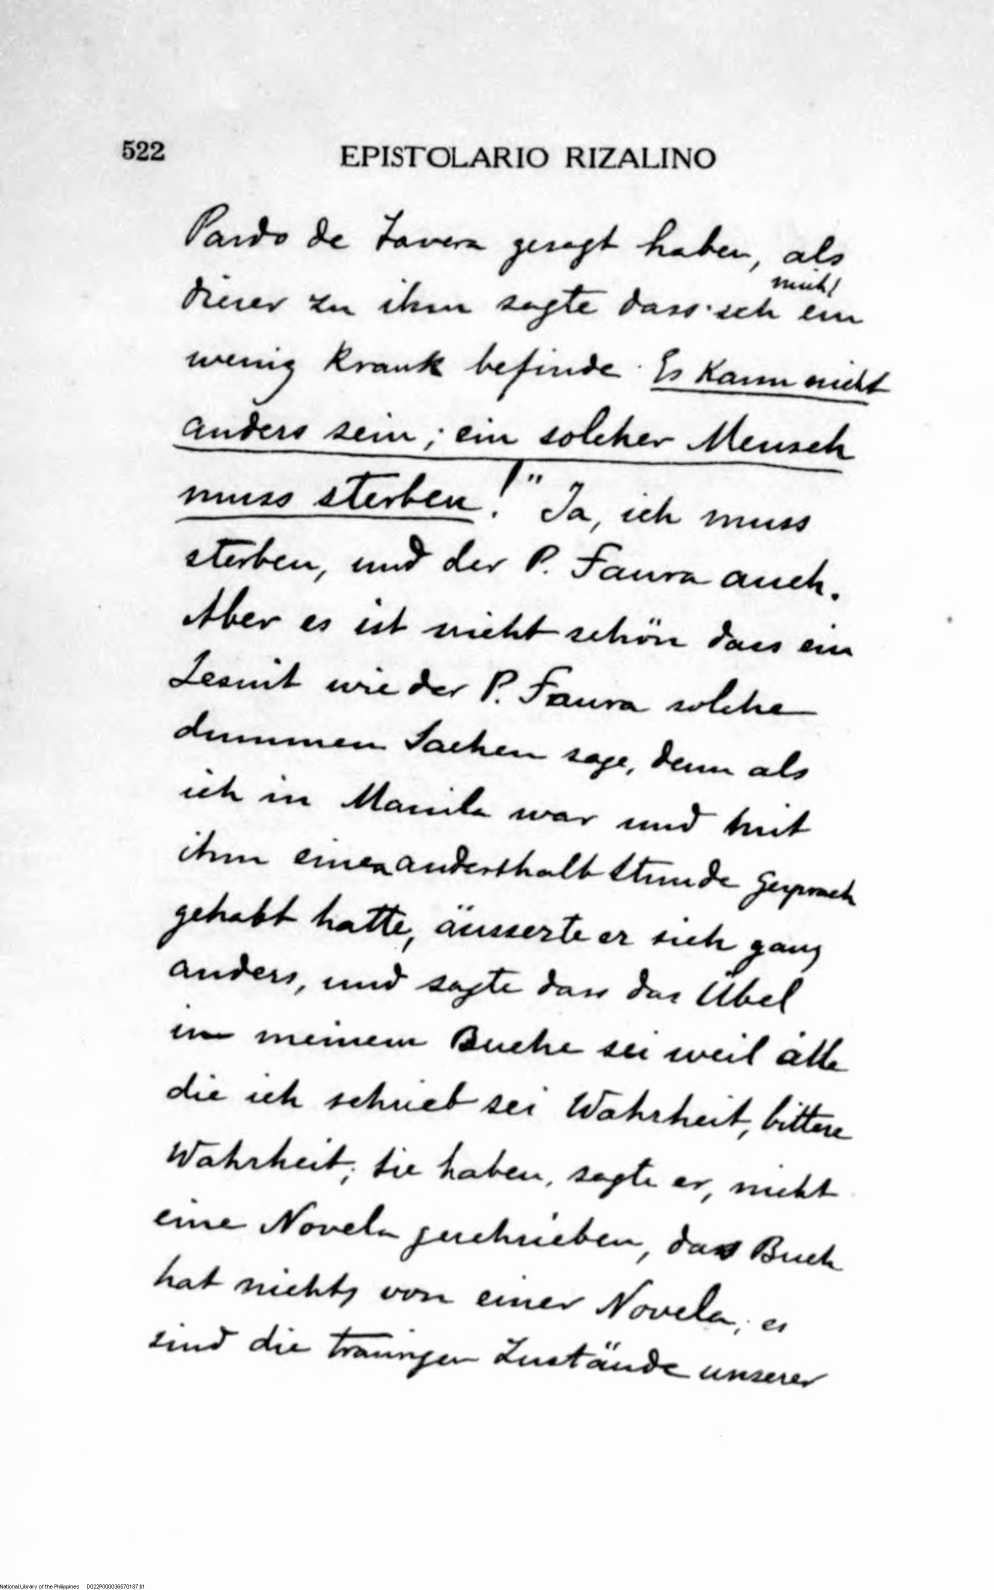 522 EPISTOLARIO RIZALINO
Pardo de Tavera gesagt haben, als
mich
dieser zu ihm sagte dass ich ein
wenig krank befinde. Es kann nicht
anders sein; ein solcher Mensch
muss sterben!" Ja, ich muss
sterben, und der P. Faura auch.
Aber es ist nicht schön dass ein
Jesuit wie der P. Faura solche
dummen Sachen sage, denn als
ich in Manila war und mit
ihm einen anderthalb Stunde Gesprach
gehabt hatte, äusserte er sich ganz
anders, und sagte dass das Übel
in meinem Buche sei weil alle
die ich schrieb sei Wahrheit, bittere
Wahrheit; Sie haben, sagte er, nicht
eine Novela geschrieben, das Buch
hat nichts von einer Novela; es
sind die traurigen Zustände unserer
National Library of the Philippines